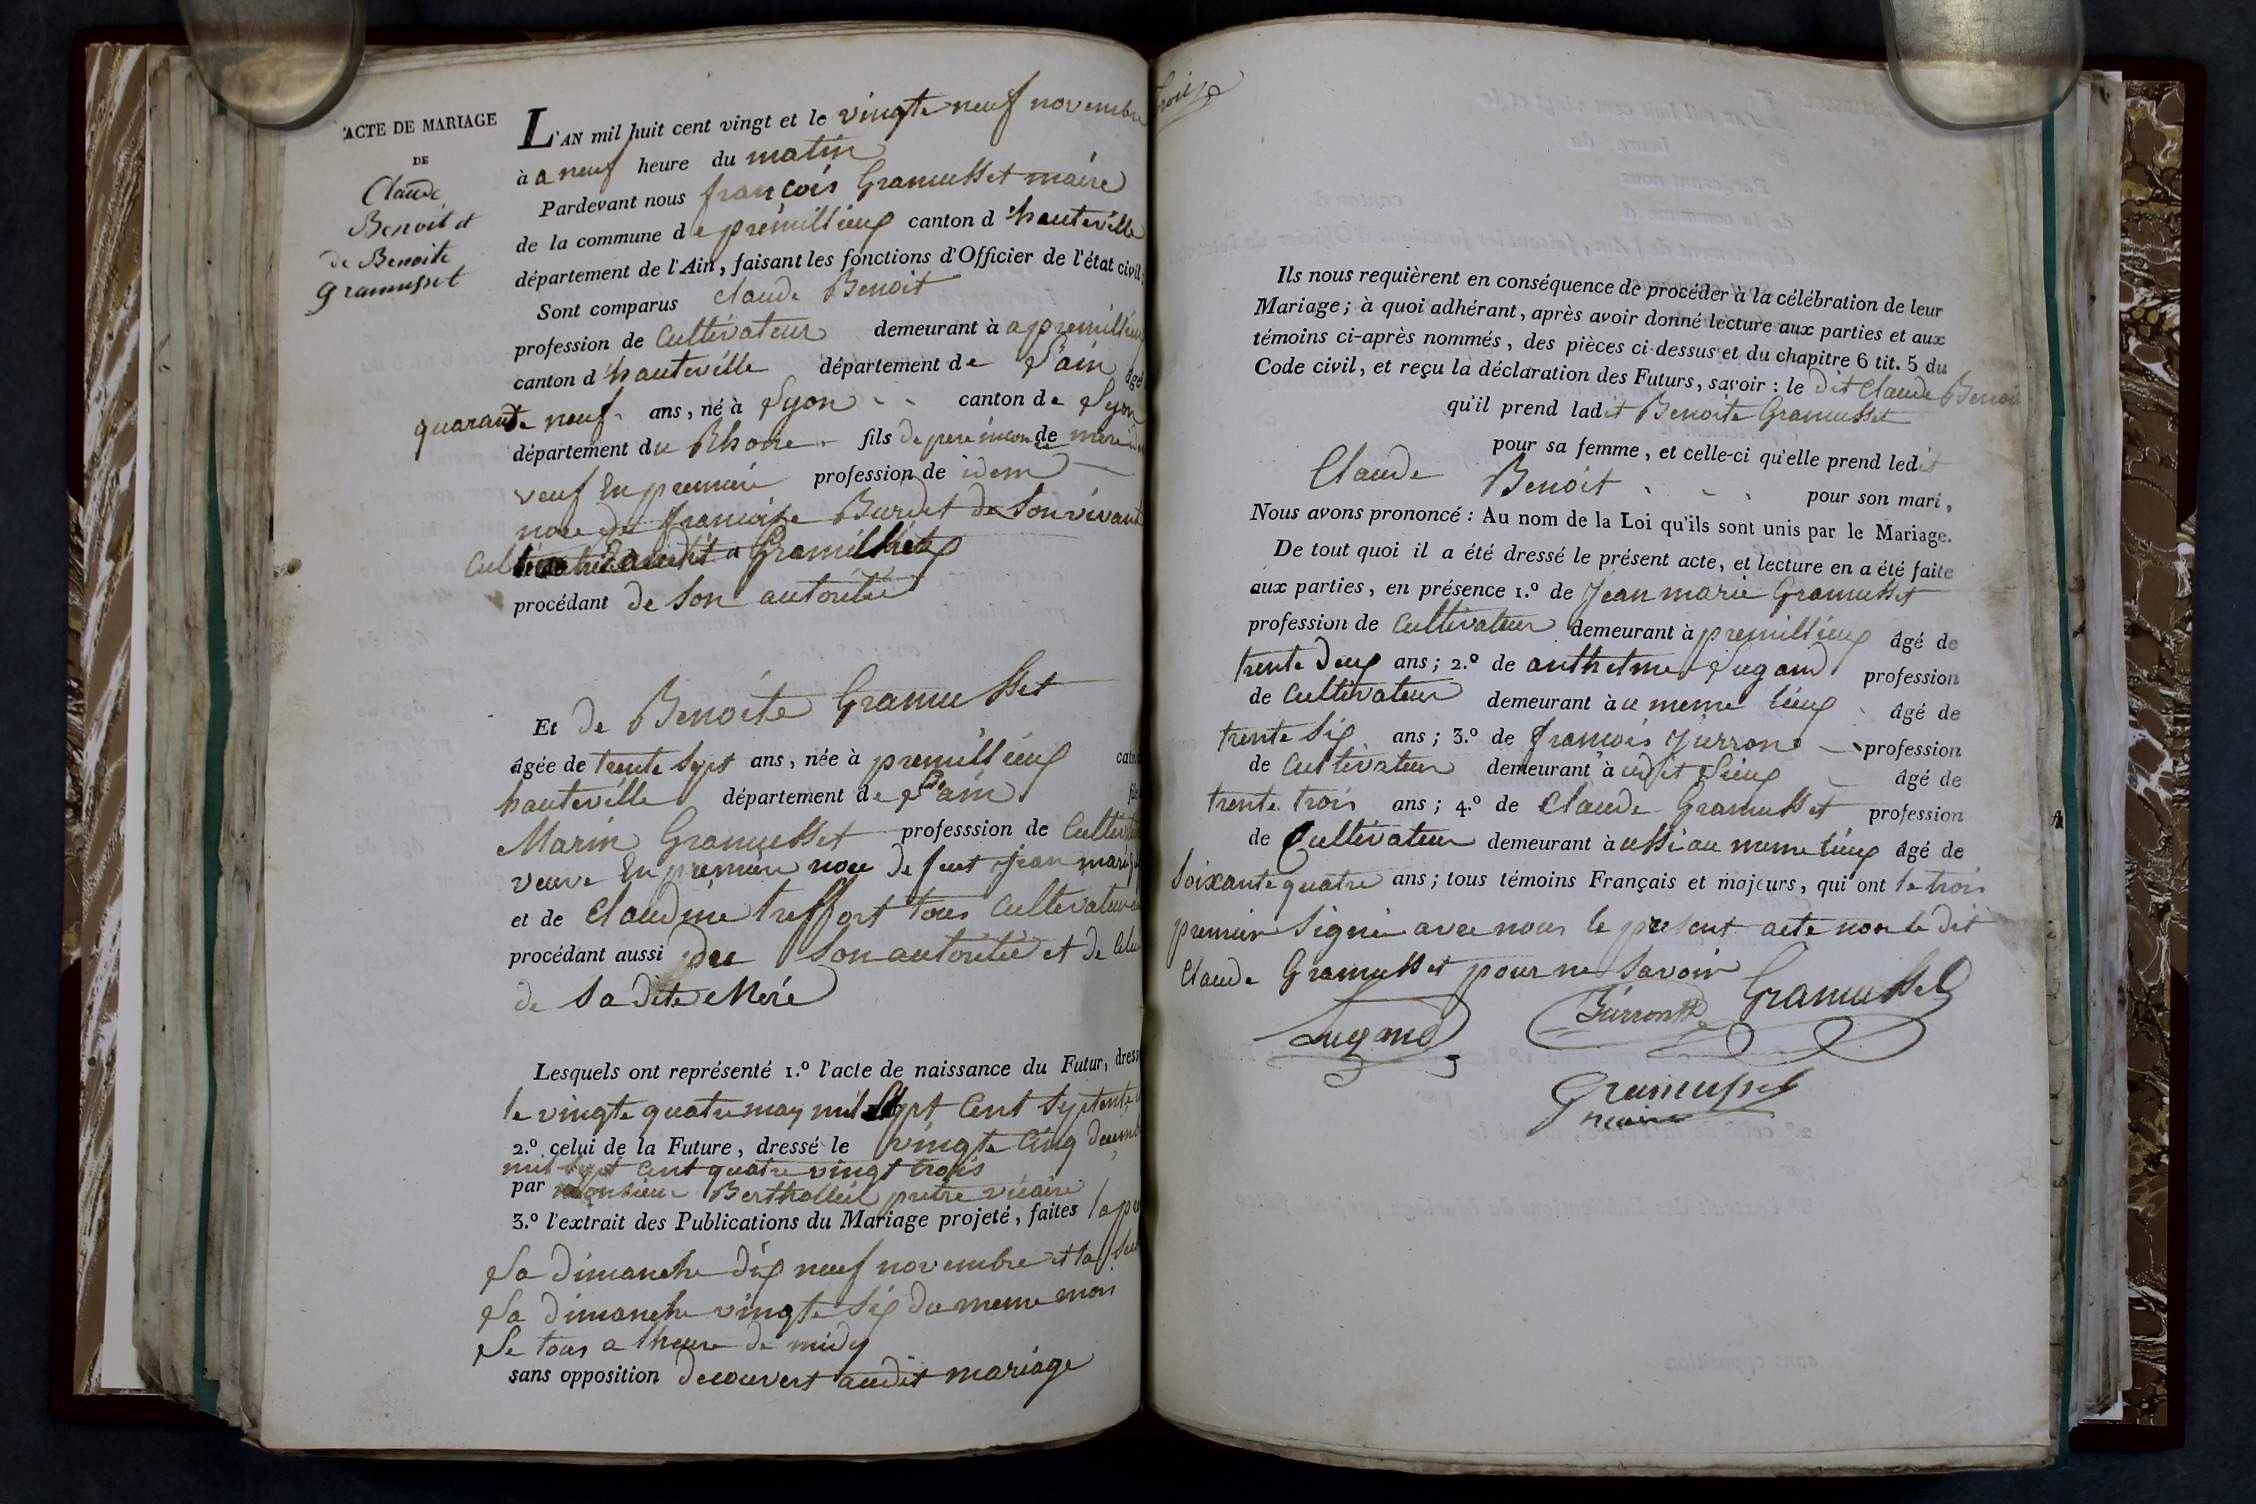 ACTE DE MARIAGE
DE
Claude
Benoit et
de Benoite
Gramusset
L'AN mil huit cent vingt et le vingte neuf novembre
à a neuf heure du matin
Pardevant nous françois Gramusset maire
de la commune de premillieux canton d'hauteville
département de l'Ain, faisant les fonctions d'Officier de l'état civil
Sont comparus Claude Benoit
profession de Cultivateur demeurant à a premillieux
canton d'hauteville département de l'ain âgé
quarante neuf ans, né à Lyon canton de Lyon
département du Rhone fils de pere incon de mere
veuf En premiere profession de idem
noce de francoise Burdet de Son vivant
procédant de Son autoritée
Et de Benoite Gramusset
âgée de trente Sept ans, née à premillieux
hauteville département de l'ain
Marin Gramusset professsion de Cultivateur
veuve En premiere noce de feut jean marie
et de Claudine treffort tous Cultivateur
procédant aussi de Son autoritée et de Celui
de Sa dite Meré
Lesquels ont représenté 1.º l'acte de naissance du Futur, dressé
le vingte quatre may mil Sept Cent Septente
2.º celui de la Future, dressé le vingte Cinq decembre
mil Sept Cent quatre vingt trois
par Monsieur Bertholleil pretre vicaire
3.º l'extrait des Publications du Mariage projeté, faites
La dimanche dix neuf novembre et la
La dimanche vingte Six du meme mois
Le tous a lheure de midy
sans opposition decouvert audit mariage
Ils nous requièrent en conséquence de procéder à la célébration de leur
Mariage; à quoi adhérant, après avoir donné lecture aux parties et aux
témoins ci-après nommés, des pièces ci-dessus et du chapitre 6 tit. 5 du
Code civil, et reçu la déclaration des Futurs, savoir : le dit Claude Benoit
qu'il prend ladit Benoite Gramusset
pour sa femme, et celle-ci qu'elle prend ledit
Claude Benoit pour son mari,
Nous avons prononcé : Au nom de la Loi qu'ils sont unis par le Mariage.
De tout quoi il a été dressé le présent acte, et lecture en a été faite
aux parties, en présence 1.º de Jean marie Gramusset
profession de Cultivateur demeurant à premillieux âgé de
trente deux ans; 2.º de anthelme Lugand profession
de Cultivateur demeurant à u meme lieux âgé de
trente Six ans; 3.º de francois Jurron profession
de Cultivateur demeurant à udit Lieux âgé de
trente trois ans; 4.º de Claude Gramusset profession
de Cultivateur demeurant à ussi au meme lieux âgé de
Soixante quatre ans; tous témoins Français et majeurs, qui ont le trois
premier Signé avec nous le present acte non le dit
Claude Gramusset pour ne Savoir
Gramusset
Gramusset
maire